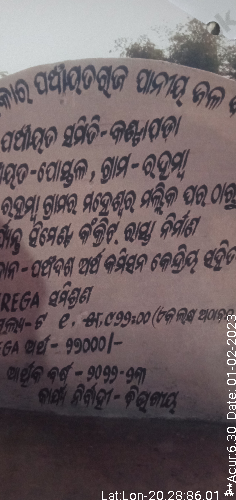 କାର ପଞ୍ଚାୟତରାଜ ପାନୀୟ ଜଳ
ପଞ୍ଚାୟତ ସମିତି-କଣ୍ଟାପଡା
ୟତ-ପୋଷ୍ତଳ, ଗ୍ରାମ-ରହମ୍ବା
ରହମ୍ବା ଗ୍ରାମର ମହେଶ୍ୱର ମଲ୍ଲିକ ଘର ଠାରୁ
ସିମେଣ୍ଟ କଂକ୍ରିଟ୍ ରାସ୍ତା ନିର୍ମାଣ
ଦାନ-ପଞ୍ଚଦଶ ଅର୍ଥ କମିସନ କେନ୍ଦ୍ରିୟ ସହିତ
REGA ସମିଶ୍ରଣ
ମୂଲ୍ୟ-ଟ
EGA ଅର୍ଥ - ୨୨୦୦୦/-
ଆର୍ଥିକ ବର୍ଷ - ୨୦୨୨-୨୩
କାର୍ଯ୍ୟ ନିର୍ବାହୀ - ବିଭାଗୀୟ
Lat:Lon-20.28:86.01
Acur:6.30 Date: 01-02-2023